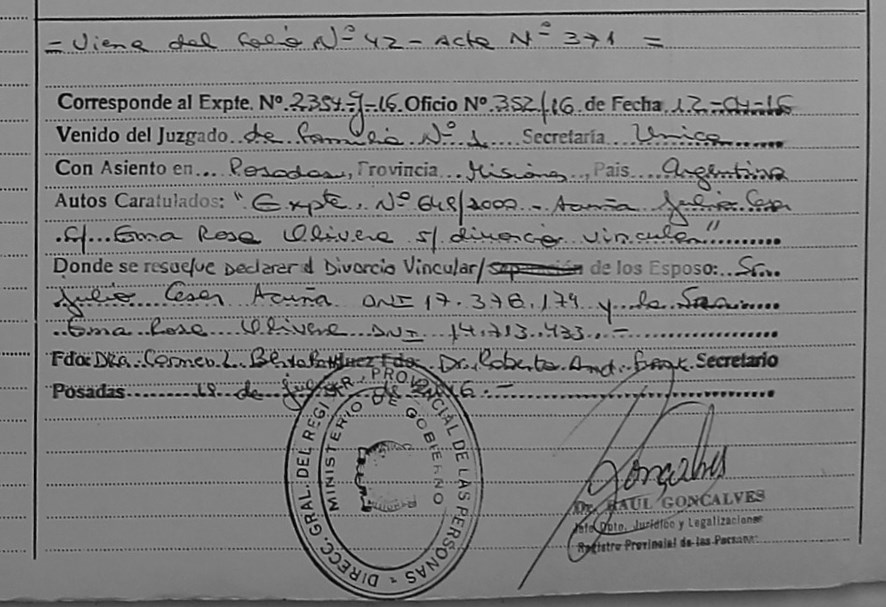 = Viene del folio Nº 42 - Acta Nº 371 =
Corresponde al Expte. Nº 2354-g-16 Oficio Nº 352/16 de Fecha 12-04-16
Venido del Juzgado de Familia Nº 1 Secretaría Unica
Con Asiento en Posadas, Provincia Misiones, País Argentina
Autos Caratulados: "Expte. Nº 648/2000 - Acuña Julio Cesar
c/ Ema Rosa Olivera s/ divorcio vincular"
Donde se resuelve Declarar el Divorcio Vincular/ de los Esposo: Sr.
Julio Cesar Acuña DNI 17.378.174 y la Sra
Ema Rosa Olivera DNI 14.713.433.-
Fdo: Dra. Carmen L. Fdo: Dr. Roberto And. Secretario
Posadas 19 de 2016.-
DIRECC. GRAL. DEL REG. PROVINCIAL DE LAS PERSONAS
MINISTERIO DE GOBIERNO
Goncalves
Dr. RAUL GONCALVES
Jefe Dpto. Jurídico y Legalizaciones
Registro Provincial de las Personas